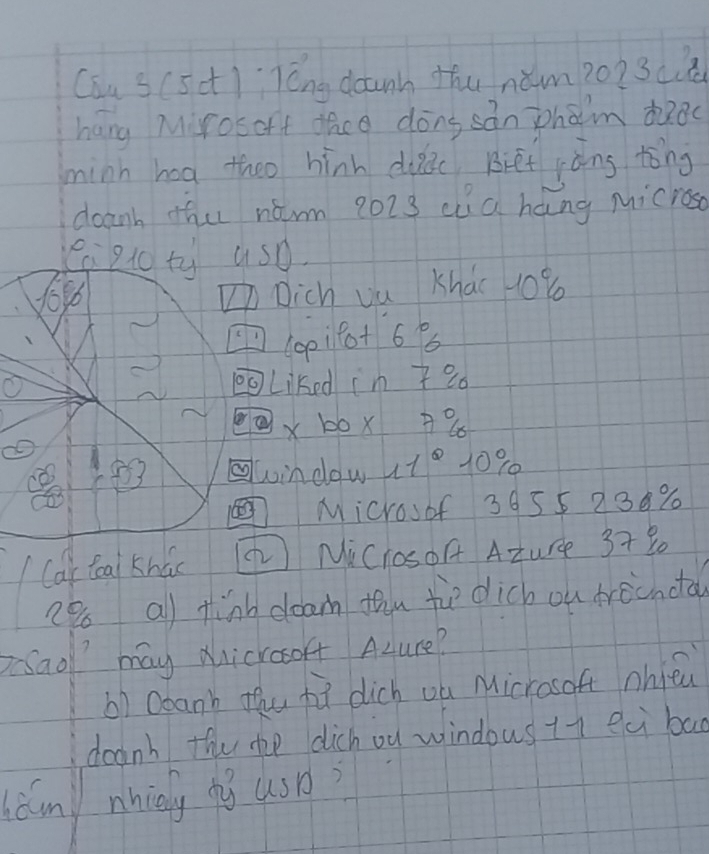 Câu 3 (5đ) : Tổng doanh thu năm 2023 của
hãng Mirosoft theo dòng sản phẩm được
minh hoạ theo hình dưới. Biết rằng tổng
doanh thu năm 2023 của hãng Microso
210 tỷ USD.
10%
Dịch vụ Khác 10%
Copilot 6%
Liked in 7%
x box 7%
Window 11° 10%
Microsof 365
Microsoft Azure 37%
Các loại Khác
2% a) tính doanh thu từ dịch vụ
mây Microsoft Azure?
b) Doanh thu từ dịch vụ Microsoft nhiều
doanh thu dịch vụ windows 11 bao
nhiêu tỷ USD?